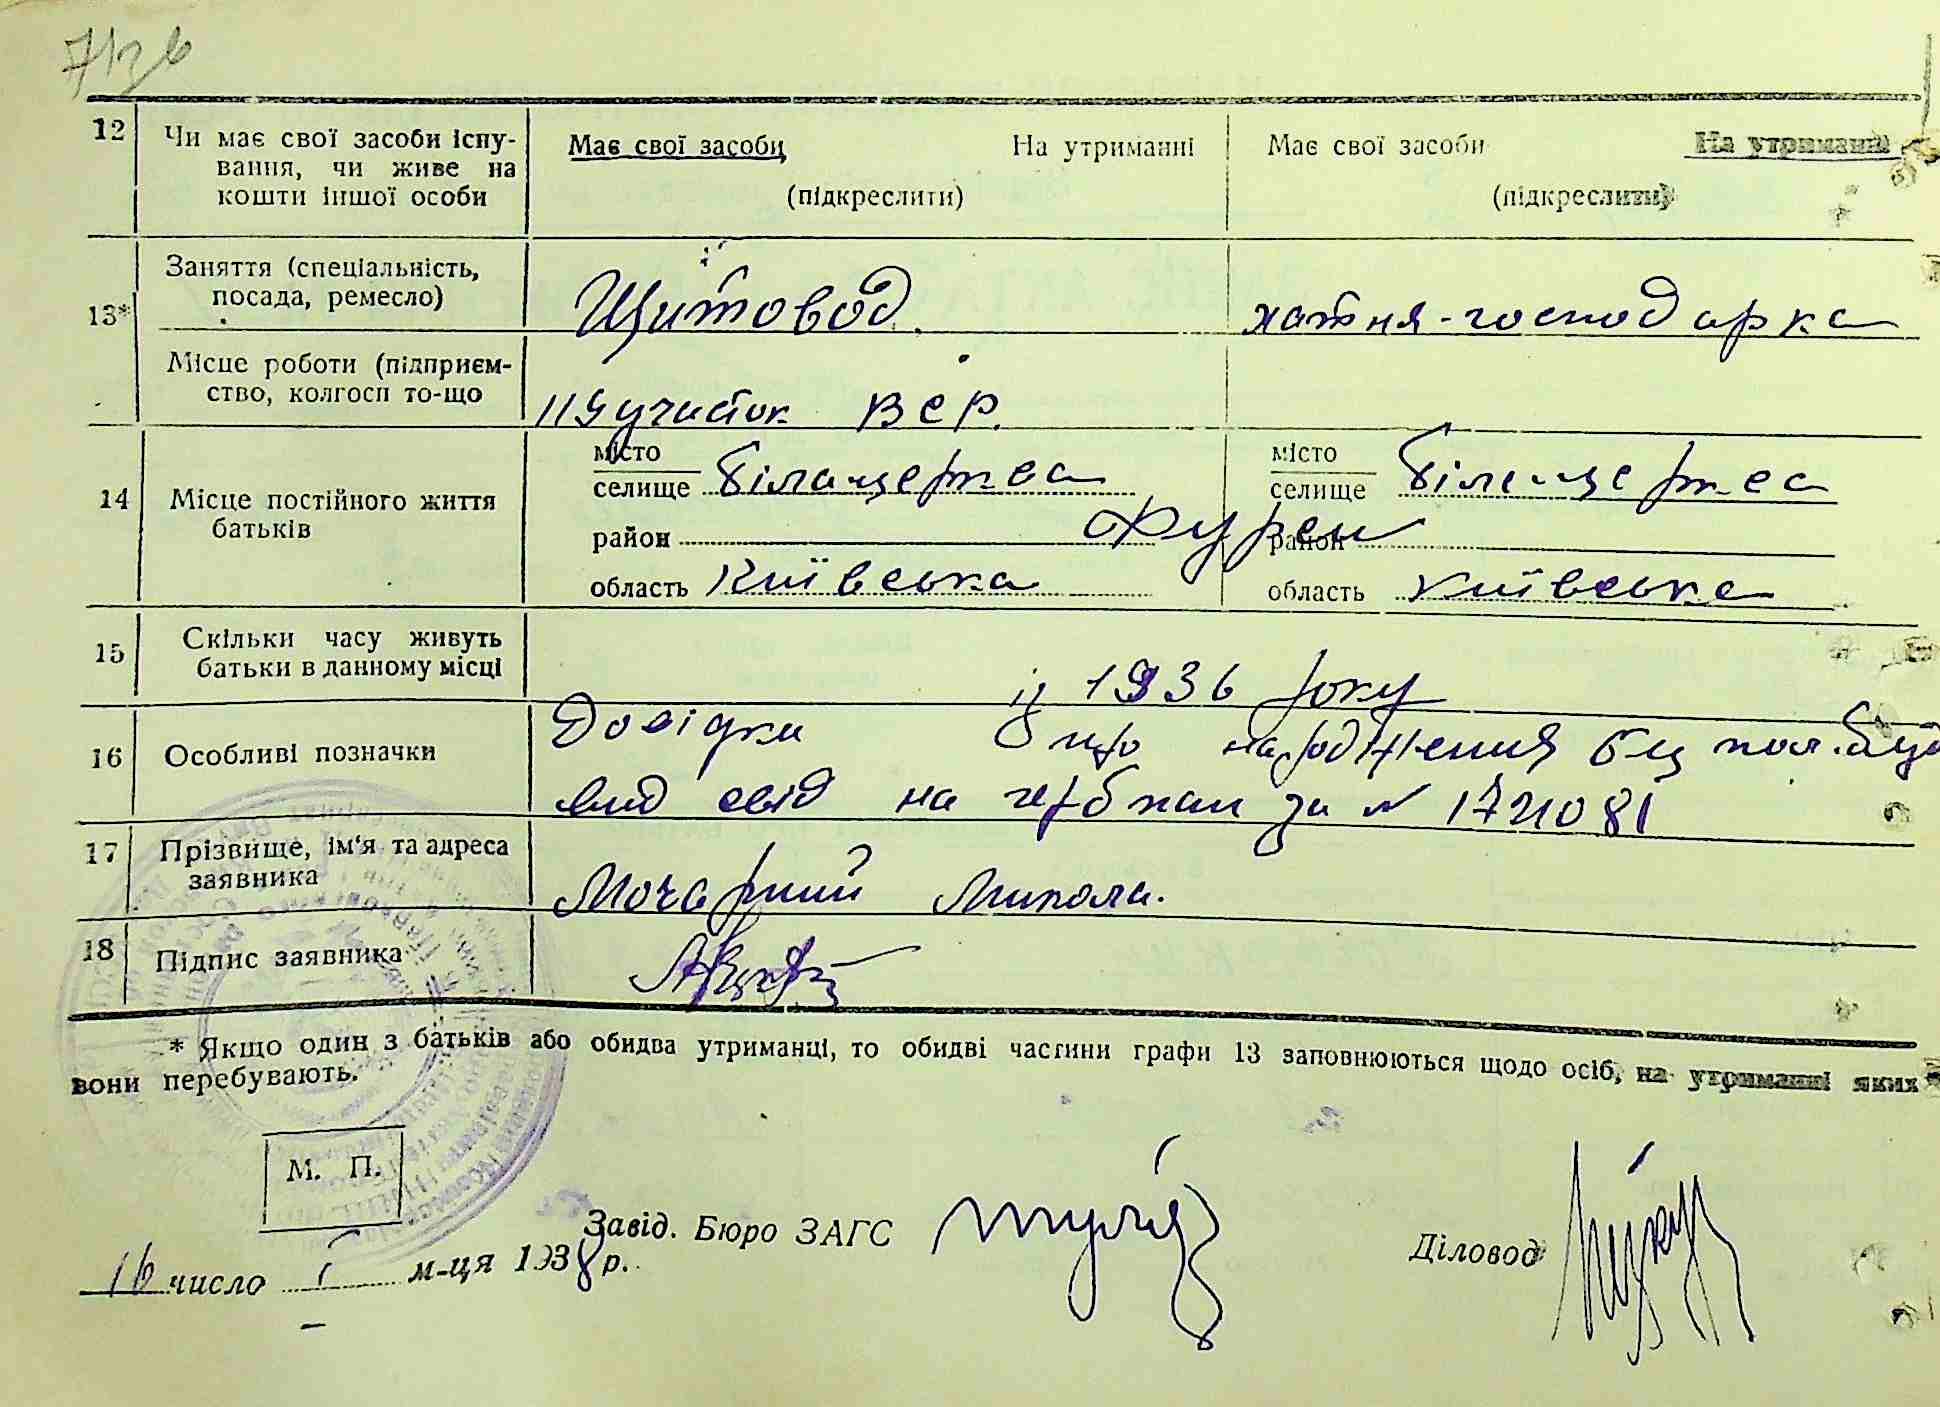 12 Чи має свої засоби існу-
вання, чи живе на
кошти іншої особи
Має свої засоби На утриманні
(підкреслити)
Має свої засоби На утриманні
(підкреслити)
13* Заняття (спеціальність,
посада, ремесло)
Щитовод.
хатня-господарка
Місце роботи (підприєм-
ство, колгосп то-що
участок
14 Місце постійного життя
батьків
місто
селище Білацерква
район
область Київська
місто
селище Білацерква
район
область Київська
15 Скільки часу живуть
батьки в данному місці
із 1936 року
16 Особливі позначки
Довідки що народження
свід на за N
17 Прізвище, ім'я та адреса
заявника
Микола.
18 Підпис заявника
* Якщо один з батьків або обидва утриманці, то обидві частини графи 13 заповнюються щодо осіб, на утриманні яких
вони перебувають.
М. П.
Завід. Бюро ЗАГС
Діловод
16 число I м-ця 1938 р.